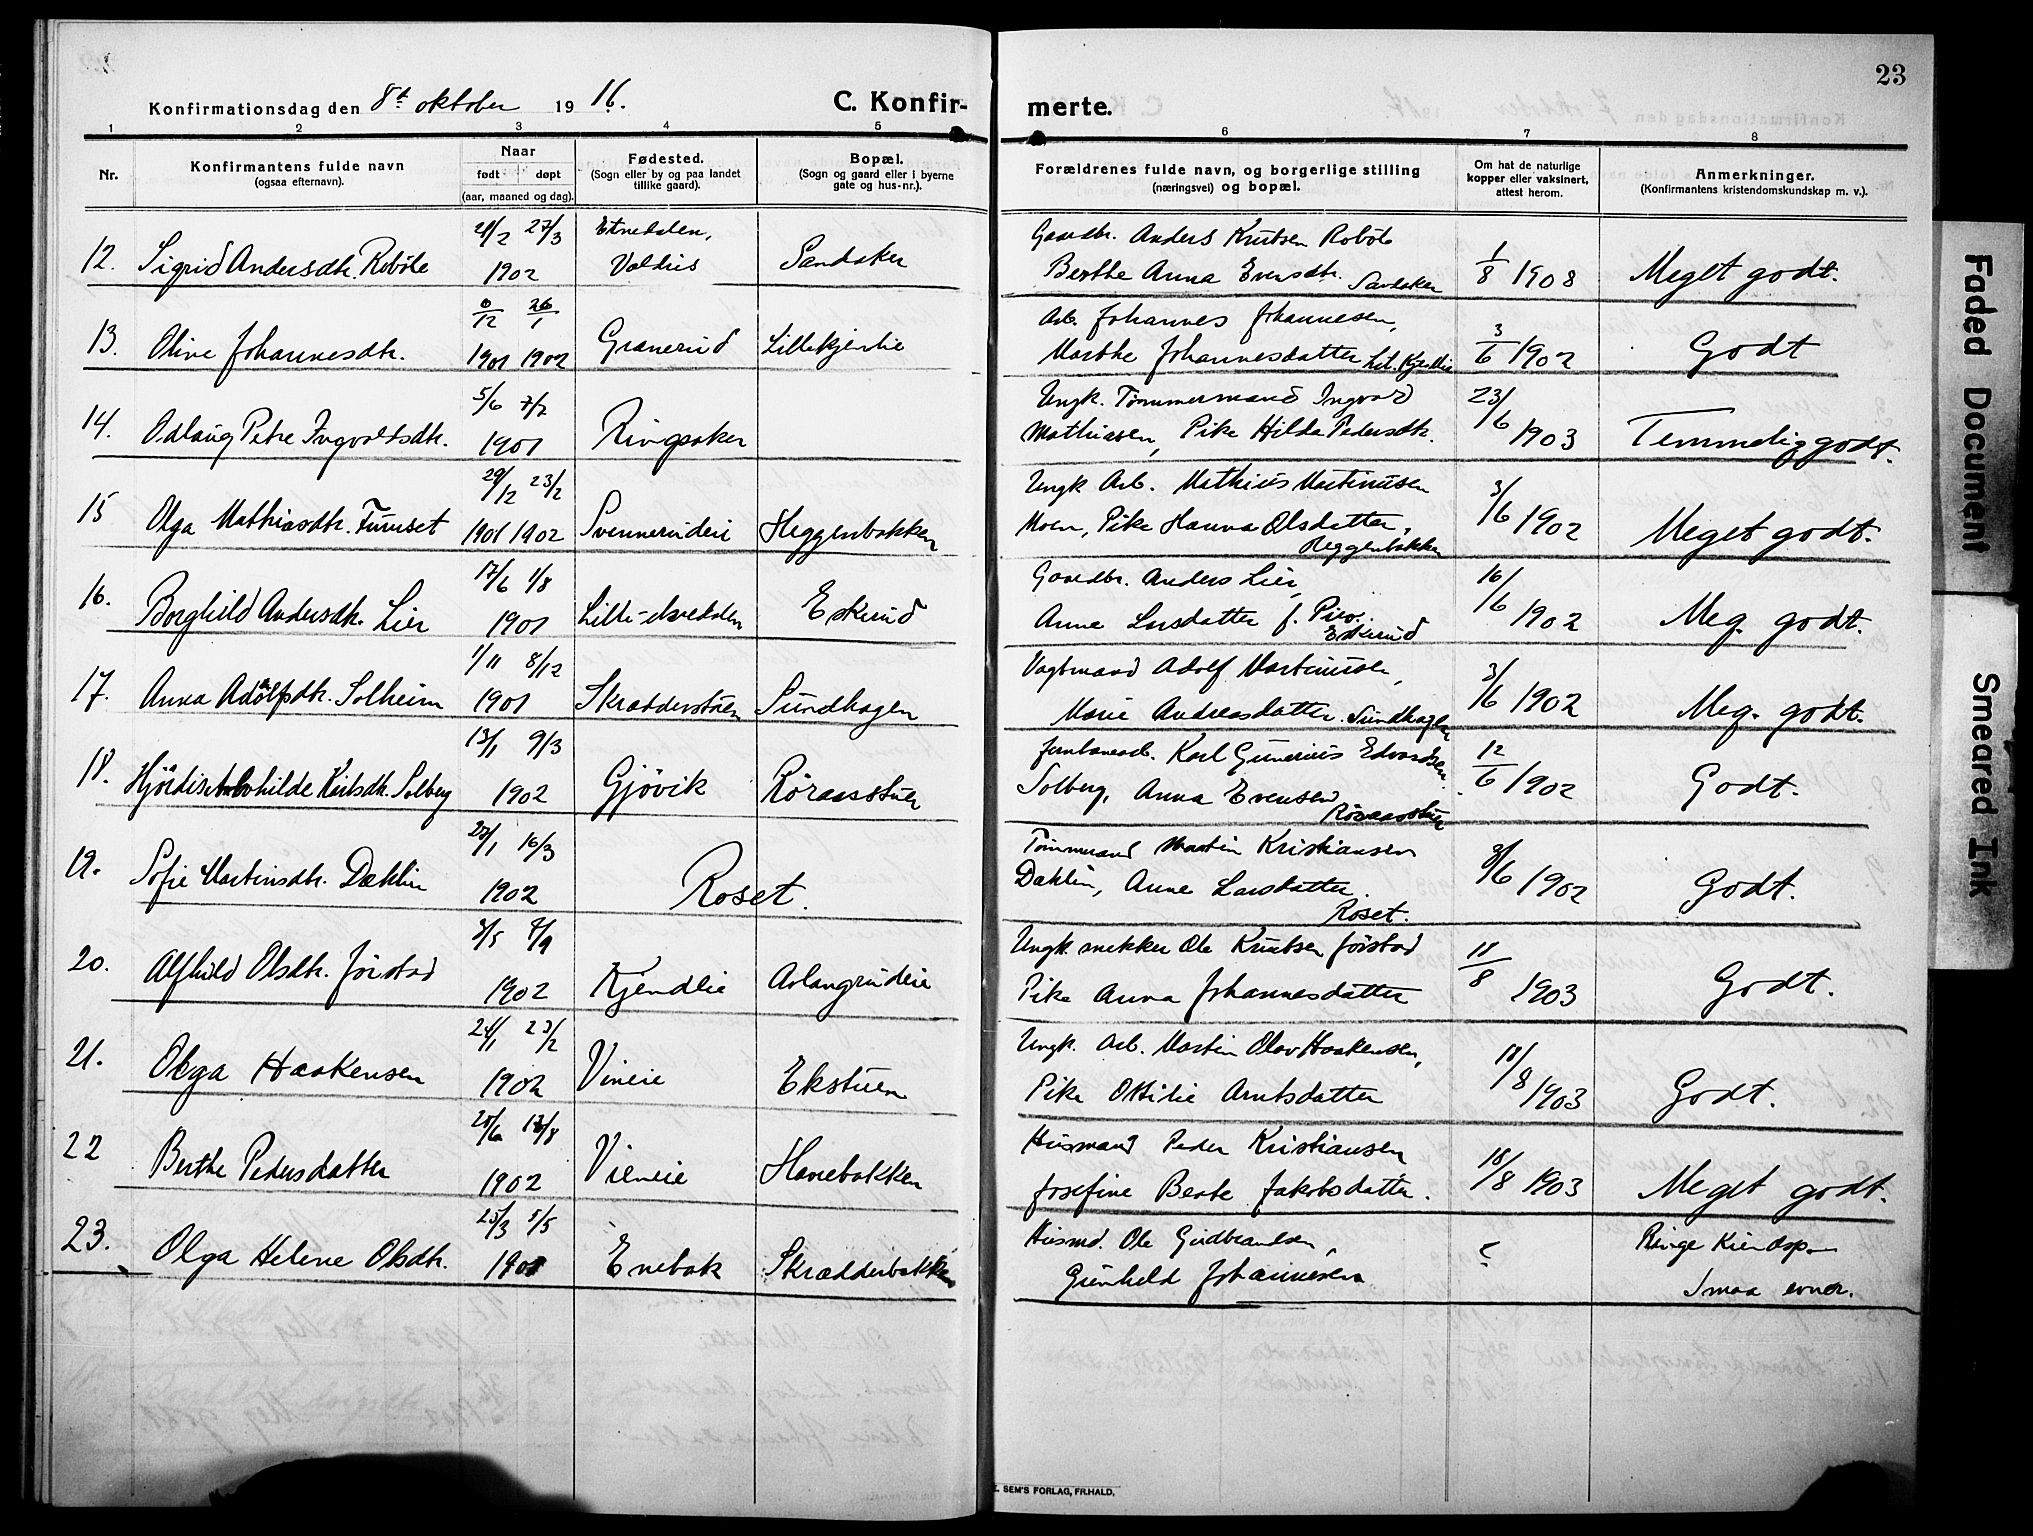 23
Konfirmationsdag den 8de oktober 1916. C. Konfir- merte.
1 2 3 4 5 6 7 8
Nr. Konfirmantens fulde navn (ogsaa efternavn). Naar født døpt (aar, maaned og dag). Fødested. (Sogn eller by og paa landet tillike gaard). Bopæl. (Sogn og gaard eller i byerne gate og hus-nr.). Forældrenes fulde navn, og borgerlige stilling (næringsvei) og bopæl. Om hat de naturlige kopper eller vaksinert, attest herom. Anmerkninger. (Konfirmantens kristendomskundskap m. v.).
21/2 27/3 Etnedalen, Gaardbr. Anders Knutsen Robøle
12. Sigrid Andersdtr. Robøle 1902 Valdris Sandaker Berthe Anna Evensdtr. Sandaker 1/8 1908 Meget godt.
/12 26/1 Arb. Johannes Johannesen,
13. Oline Johannesdtr. 1901 1902 Granerud Lillekjendlie Marthe Johannesdatter Lil. Kjendlie 3/6 1902 Godt
5/6 7/7 Ungk. Tømmermand Ingvald 23/6
14. Odlaug Petre Ingvaldsdtr. 1901 Ringsaker Mathiasen, Pike Hilda Pedersdtr. 1903 Temmelig godt.
29/12 23/2 Ungk Arb. Mathias Martinusen
15 Olga Mathiasdtr. Furuset 1901 1902 Svennerudeie Heggenbakken Moen, Pike Hanna Olsdatter, 3/6 1902 Meget godt.
Heggenbakken
17/6 1/8 Gaardbr. Anders Lier, 16/6
16. Borghild Andersdtr. Lier 1901 Eskerud Anne Larsdatter f. 1902 Meg. godt.
Eskerud
1/11 8/12 Vagtmand Adolf Martinusen,
17. Anna Adolfsdtr. Solheim 1901 Skrædderstuen Sundhagen Marie Andreasdatter. Sundhagen 3/6 1902 Meg. godt.
13/1 9/3 Jernbanearb. Karl Gunerius Edvardsen
18. Hjørdis hilde Karlsdtr. Solberg 1902 Gjøvik Røraasstuen Solberg, Anna Evensen 12/6 1902 Godt.
Røraasstuen
/1 16/3 Tømmermand Martin Kristiansen
19. Sofie Martinsdtr. Dæhlin 1902 Roset. Dæhlin, Anne Larsdatter. /6 1902 Godt.
Roset.
/5 7/9 Ungk. snekker Ole Knutsen Jørstad
20. Alfhild Olsdtr. Jørstad 1902 Kjendlie Aslangrudeie Pike Anna Johannesdatter 11/8 1903 Godt.
24/1 23/2 Ungk. Arb. Martin Olav Haakensen,
21. Olga Haakensen 1902 Vineie Ekstuen Pike Ottilie Arntsdatter 18/8 1903 Godt.
25/6 /8 Husmand Peder Kristiansen
22 Berthe Pedersdatter 1902 Vieneie Hanebakken Josefine Beate Jakobsdatter. 18/8 1903 Meget godt.
25/3 5/5 Husmd. Ole Gudbrandsen, Ringe Kundsp.
23. Olga Helene Olsdtr. 1901 Enebak Skrædderbakken Gunhild Johannesen ? Smaa evner.
E. SEM'S FORLAG, FR.HALD.
Faded Document
Smeared Ink